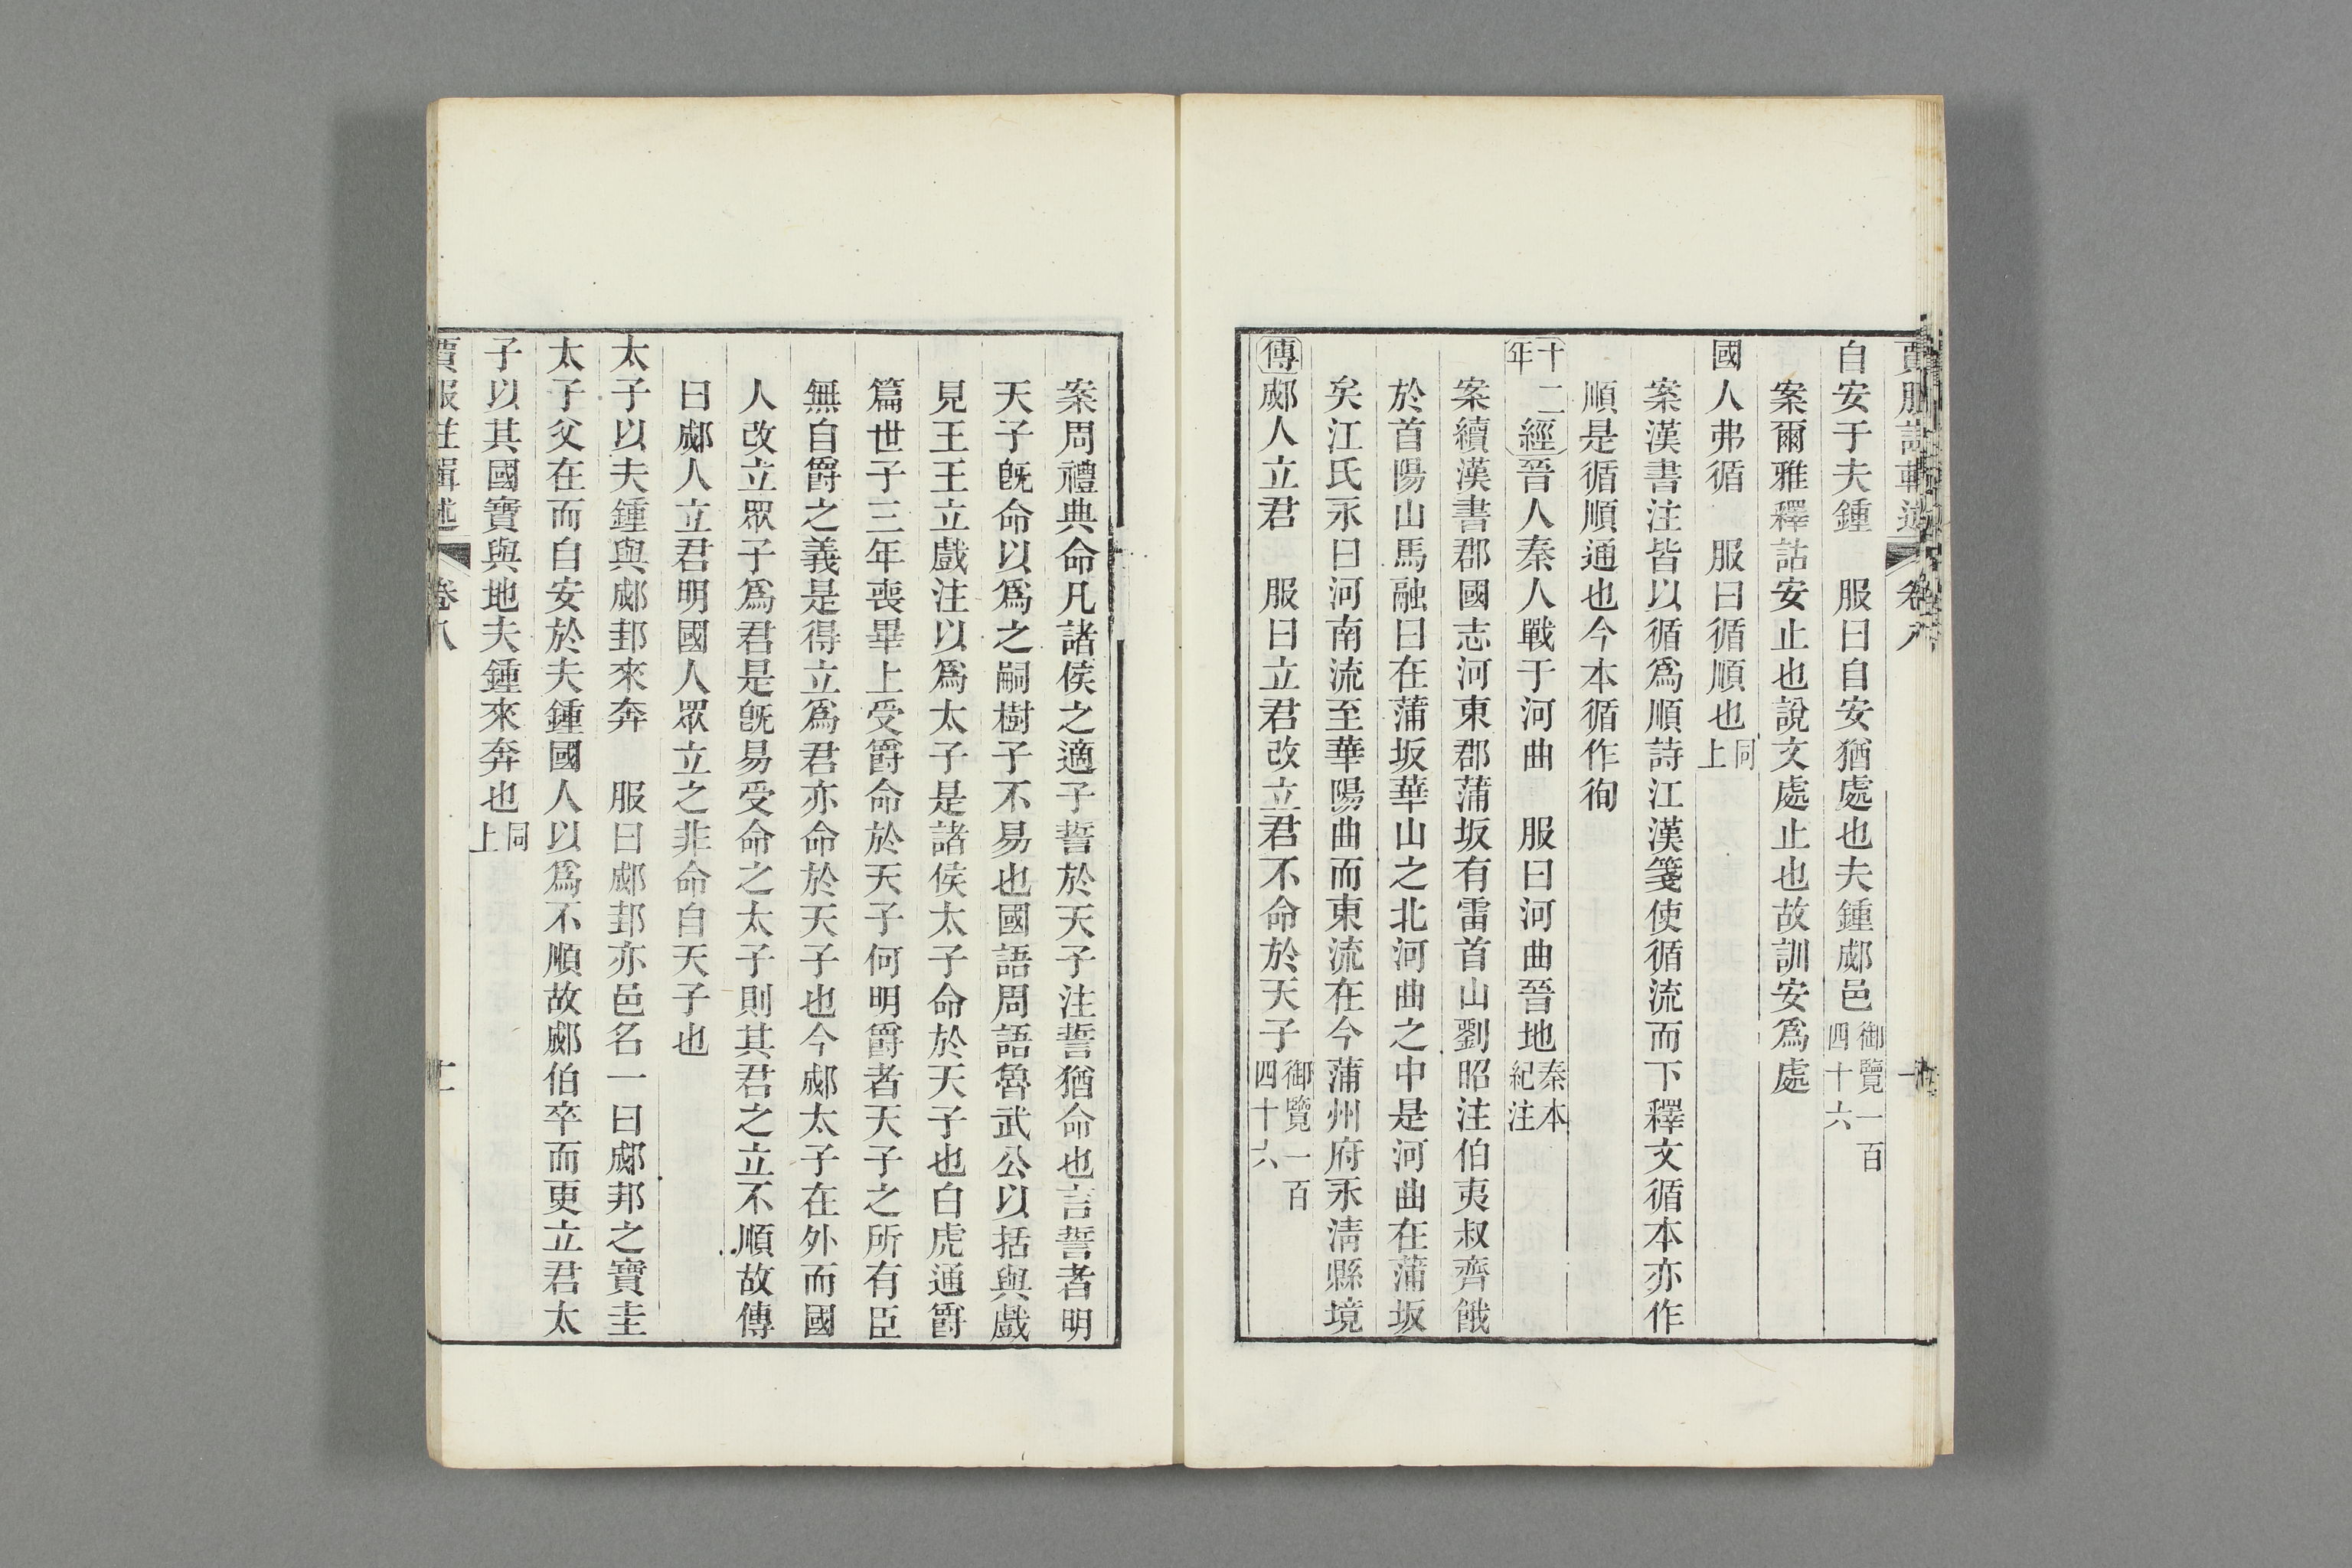 賈服註輯述 卷八
自安于夫鍾　服曰自安猶處也夫鍾郕邑御覽一百四十六
案爾雅釋詁安止也說文處止也故訓安爲處
國人弗循　服曰循順也同上
案漢書注皆以循爲順詩江漢箋使循流而下釋文循本亦作
順是循順通也今本循作徇
十二年經晉人秦人戰于河曲　服曰河曲晉地秦本紀注
案續漢書郡國志河東郡蒲坂有雷首山劉昭注伯夷叔齊餓
於首陽山馬融曰在蒲坂華山之北河曲之中是河曲在蒲坂
矣江氏永曰河南流至華陽曲而東流在今蒲州府永濟縣境
傳郕人立君　服曰立君改立君不命於天子御覽一百四十六
案周禮典命凡諸侯之適子誓於天子注誓猶命也言誓者明
天子旣命以爲之嗣樹子不易也國語周語魯武公以括與戲
見王王立戲注以爲太子是諸侯太子命於天子也白虎通爵
篇世子三年喪畢上受爵命於天子何明爵者天子之所有臣
無自爵之義是得立爲君亦命於天子也今郕太子在外而國
人改立眾子爲君是旣易受命之太子則其君之立不順故傳
曰郕人立君明國人眾立之非命自天子也
太子以夫鍾與郕邽來奔　服曰郕邽亦邑名一曰郕邦之寶圭
太子父在而自安於夫鍾國人以爲不順故郕伯卒而更立君太
子以其國寶與地夫鍾來奔也同上
賈服註輯述 卷八 十二